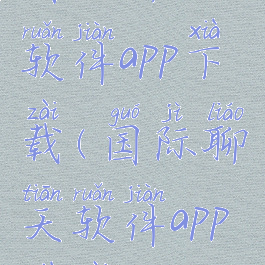 ruǎn jiàn xià
软件app下
zài guó jì liáo
载(国际聊
tiān ruǎn jiàn
天软件app